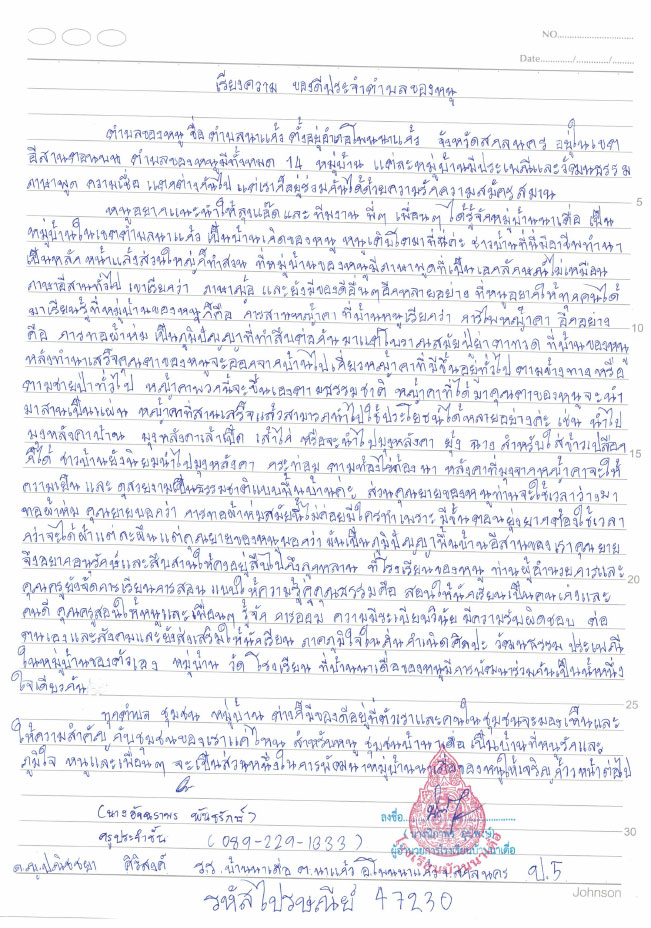 NO.
Date
เรียงความ ของดีประจำตำบลของหนู
ตำบลของหนู ชื่อ ตำบลนาแก้ว ตั้งอยู่อำเภอโพนนาแก้ว จังหวัดสกลนคร อยู่ในเขต
อีสานตอนบน ตำบลของหนูมีทั้งหมด 14 หมู่บ้าน แต่ละหมู่บ้านมีประเพณีและวัฒนธรรม
ภาษาพูด ความเชื่อ แตกต่างกันไป แต่เราก็อยู่ร่วมกันได้ด้วยความรักความสมัครสมาน
หนูอยากแนะนำให้ลุงแอ๊ด และ ทีมงาน พี่ๆ เพื่อนๆ ได้รู้จักหมู่บ้านนาเดื่อ เป็น
หมู่บ้านในเขตตำบลนาแก้ว เป็นบ้านเกิดของหนู หนูเติบโตมาที่นี่ค่ะ ชาวบ้านที่นี่มีอาชีพทำนา
เป็นหลัก หน้าแล้งส่วนใหญ่ก็ทำสวน ที่หมู่บ้านของหนูมีภาษาพูดที่เป็นเอกลักษณ์ไม่เหมือน
ภาษาอีสานทั่วไป เขาเรียกว่า ภาษาญ้อ และยังมีของดีอื่นๆอีกหลายอย่าง ที่หนูอยากให้ทุกคนได้
มาเรียนรู้ที่หมู่บ้านของหนูก็คือ การสานหญ้าคา ที่บ้านหนูเรียกว่า การไพหญ้าคา อีกอย่าง
คือ การทอผ้าห่ม เป็นภูมิปัญญาที่ทำสืบต่อกันมาแต่โบราณสมัยปู่ยาตาทวด ที่บ้านของหนู
หลังทำนาเสร็จคุณตาของหนูจะออกจากบ้านไปเกี่ยวหญ้าคาที่มีขึ้นอยู่ทั่วไป ตามข้างทางหรือ
ตามชายป่าทั่วไป หญ้าคาพวกนี้จะขึ้นเองตามธรรมชาติ หญ้าคาที่ได้มาคุณตาของหนูจะนำ
มาสานเป็นแผ่น หญ้าคาที่สานเสร็จแล้วสามารถนำไปใช้ประโยชน์ได้หลายอย่างค่ะ เช่น นำไป
มุงหลังคาบ้าน มุงหลังคาเล้าเป็ด เล้าไก่ หรือจะนำไปมุงหลังคา ยุ้ง ฉาง สำหรับใส่ข้าวเปลือก
ก็ได้ ชาวบ้านยังนิยมนำไปมุงหลังคา กระท่อม ตามท้องไร่ท้องนา หลังคาที่มุงจากหญ้าคาจะให้
ความเย็น และ ดูสวยงามเป็นธรรมชาติแบบพื้นบ้านค่ะ ส่วนคุณยายของหนูท่านจะใช้เวลาว่างมา
ทอผ้าห่ม คุณยายบอกว่า การทอผ้าห่มสมัยนี้ไม่ค่อยมีใครทำเพราะ มีขั้นตอนยุ่งยากต้องใช้เวลา
กว่าจะได้ผ้าแต่ละผืน แต่คุณยายของหนูบอกว่า มันเป็นภูมิปัญญาพื้นบ้านอีสานของเรา คุณยาย
จึงอยากอนุรักษ์และสืบสานให้คงอยู่สืบไปถึงลูกหลาน ที่โรงเรียนของหนู ท่านผู้อำนวยการและ
คุณครูยังจัดการเรียนการสอน แบบให้ความรู้คู่คุณธรรมคือ สอนให้นักเรียนเป็นคนเก่งและ
คนดี คุณครูสอนให้หนูและเพื่อนๆ รู้จัก การออม ความมีระเบียบวินัย มีความรับผิดชอบ ต่อ
ตนเองและสังคมและยังส่งเสริมให้นักเรียน ภาคภูมิใจในถิ่นกำเนิดศิลปะ วัฒนธรรม ประเพณี
ในหมู่บ้านของตัวเอง หมู่บ้าน วัด โรงเรียน ที่บ้านนาเดื่อของหนูมีการพัฒนาร่วมกันเป็นน้ำหนึ่ง
ใจเดียวกัน
ทุกตำบล ชุมชน หมู่บ้าน ต่างก็มีของดีอยู่ที่ตัวเราและคนในชุมชนจะมองเห็นและ
ให้ความสำคัญ กับชุมชนของเราแค่ไหน สำหรับหนู ชุมชนบ้านนาเดื่อ เป็นบ้านที่หนูรักและ
ภูมิใจ หนูและเพื่อนๆ จะเป็นส่วนหนึ่งในการพัฒนาหมู่บ้านนาเดื่อของหนูให้เจริญก้าวหน้าต่อไป
ลงชื่อ
ครูประจำชั้น (089-229-1333)
ผู้อำนวยการโรงเรียนบ้านนาเดื่อ
ศิริสงค์ ร.ร. บ้านนาเดื่อ ต.นาแก้ว อ.โพนนาแก้ว จ.สกลนคร ป.5
Johnson
รหัสไปรษณีย์ 47230
5
10
15
20
25
30